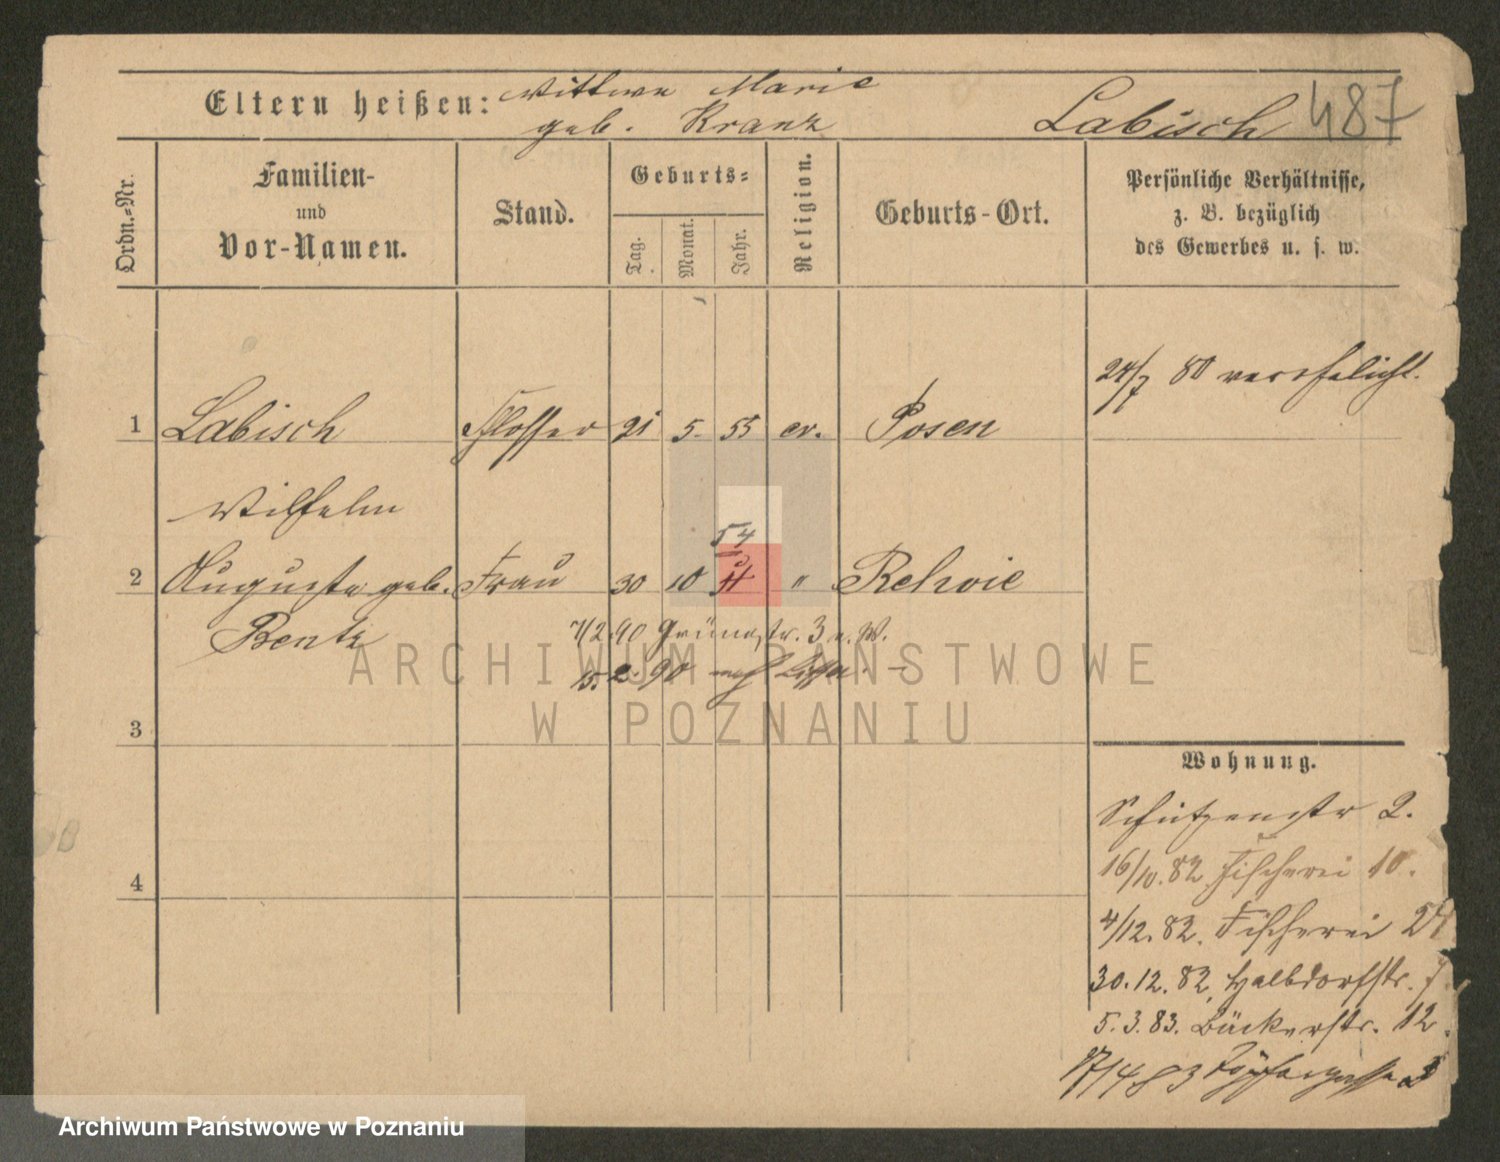 Eltern heißen: Wittwe Marie
geb. Kranz
Labisch 487
Ordn.-Nr.
Familien-
und
Vor-Namen.
Stand.
Geburts-
Tag.
Monat.
Jahr.
Religion.
Geburts-Ort.
Persönliche Verhältnisse,
z. B. bezüglich
des Gewerbes u. s. w.
24/7 80 verehelicht.
1 Labisch Schlosser 21 5. 55 ev. Posen
Wilhelm
54
2 Auguste geb. Frau 30 10 " Rehvie
Bentz
7/2 90 Grünestr. 3 n. W.
15. 2. 90 nach Lissa
3
4
Wohnung.
Schützenstr 2.
16/10. 82 Fischerei 10.
4/12. 82. Fischerei 24
30. 12. 82, Halbdorfstr. 7
5. 3. 83. Bäckerstr. 12.
17/4 83 Töpfergasse 3
ARCHIWUM PAŃSTWOWE
W POZNANIU
Archiwum Państwowe w Poznaniu